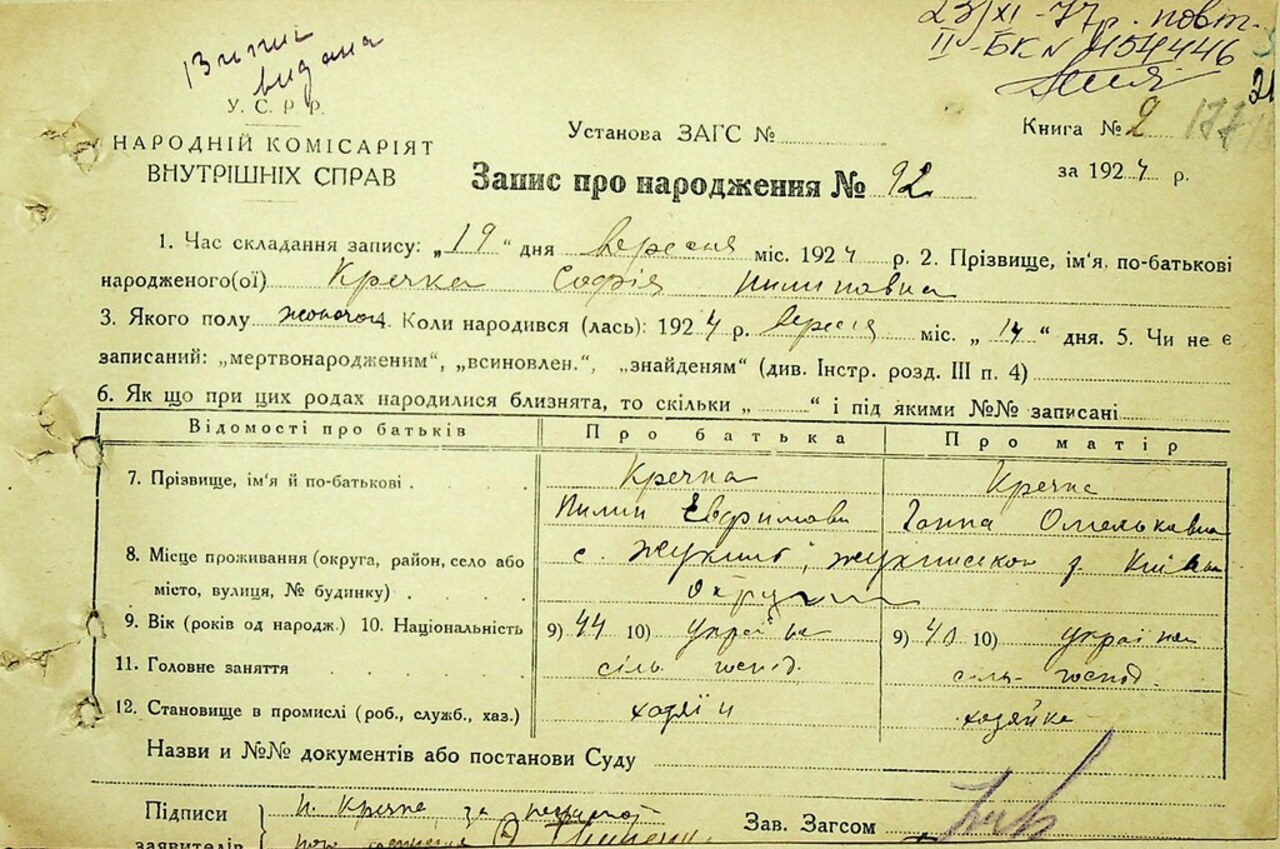 Виписи
видана
23/XI-77р. повт.
II-БК № 454446
У. С. Р. Р.
НАРОДНІЙ КОМІСАРІЯТ
ВНУТРІШНІХ СПРАВ
Установа ЗАГС №
Книга № 2
за 1924 р.
Запис про народження № 92
1. Час складання запису: „19“ дня вересня міс. 1924 р. 2. Прізвище, ім'я, по-батькові
народженого(ої) Кречка Софія Пилиповна
3. Якого полу жоночої 4. Коли народився (лась): 1924 р. вересня міс. „14“ дня. 5. Чи не є
записаний: „мертвонародженим“, „всиновлен.“, „знайденям“ (див. Інстр. розд. III п. 4)
6. Як що при цих родах народилися близнята, то скільки „ “ і під якими №№ записані
Відомості про батьків Про батька Про матір
7. Прізвище, ім'я й по-батькові Кречка Кречка
Пилип Евфимови Ганна Омельковна
8. Місце проживання (округа, район, село або с.
місто, вулиця, № будинку) округи
9. Вік (років од народж.) 10. Національність 9) 44 10) україн 9) 40 10) україн
11. Головне заняття сіль госпід. сіль-господ.
12. Становище в промислі (роб., служб., хаз.) ходяїн ходяйка
Назви и №№ документів або постанови Суду
Підписи П. Кречка, за
заявителів
Зав. Загсом